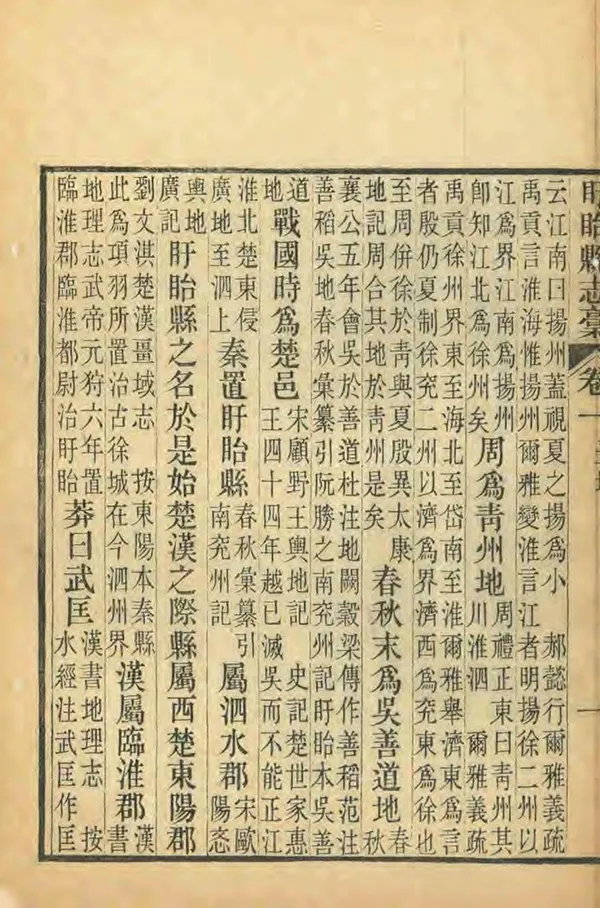 盱眙縣志稾 卷一
云江南曰揚州蓋視夏之揚爲小 郝懿行爾雅義疏
禹貢言淮海惟揚州爾雅變淮言江者明揚徐二州以
江爲界江南爲揚州
卽知江北爲徐州矣
周爲靑州地
周禮正東曰靑州其
川淮泗 爾雅義疏
禹貢徐州界東至海北至岱南至淮爾雅舉濟東爲言
者殷仍夏制徐兗二州以濟爲界濟西爲兗東爲徐也
至周併徐於靑與夏殷異太康
地記周合其地於靑州是矣
春秋末爲吳善道地
春
秋
襄公五年會吳於善道杜注地闕穀梁傳作善稻范注
善稻吳地春秋彙纂引阮勝之南兗州記盱眙本吳善
道
地
戰國時爲楚邑
宋顧野王輿地記 史記楚世家惠
王四十四年越已滅吳而不能正江
淮北楚東侵
廣地至泗上
秦置盱眙縣
春秋彙纂引
南兗州記
屬泗水郡
宋歐
陽忞
輿地
廣記
盱眙縣之名於是始楚漢之際縣屬西楚東陽郡
劉文淇楚漢疆域志 按東陽本秦縣
此爲項羽所置治古徐城在今泗州界
漢屬臨淮郡
漢
書
地理志武帝元狩六年置
臨淮郡臨淮都尉治盱眙
莽曰武匡
漢書地理志 按
水經注武匡作匡